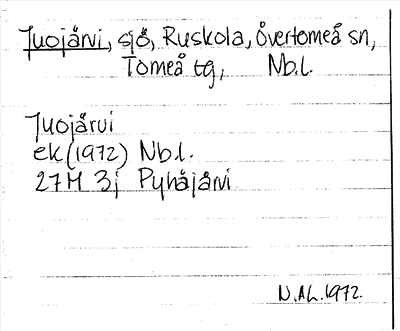 Juojärvi, sjö, Ruskola, Övertorneå sn,
Torneå tg, Nb.l.
Juojärvi
ek (1972) Nb.l.
27M 3j Pyhäjärvi
N.AL.1972.